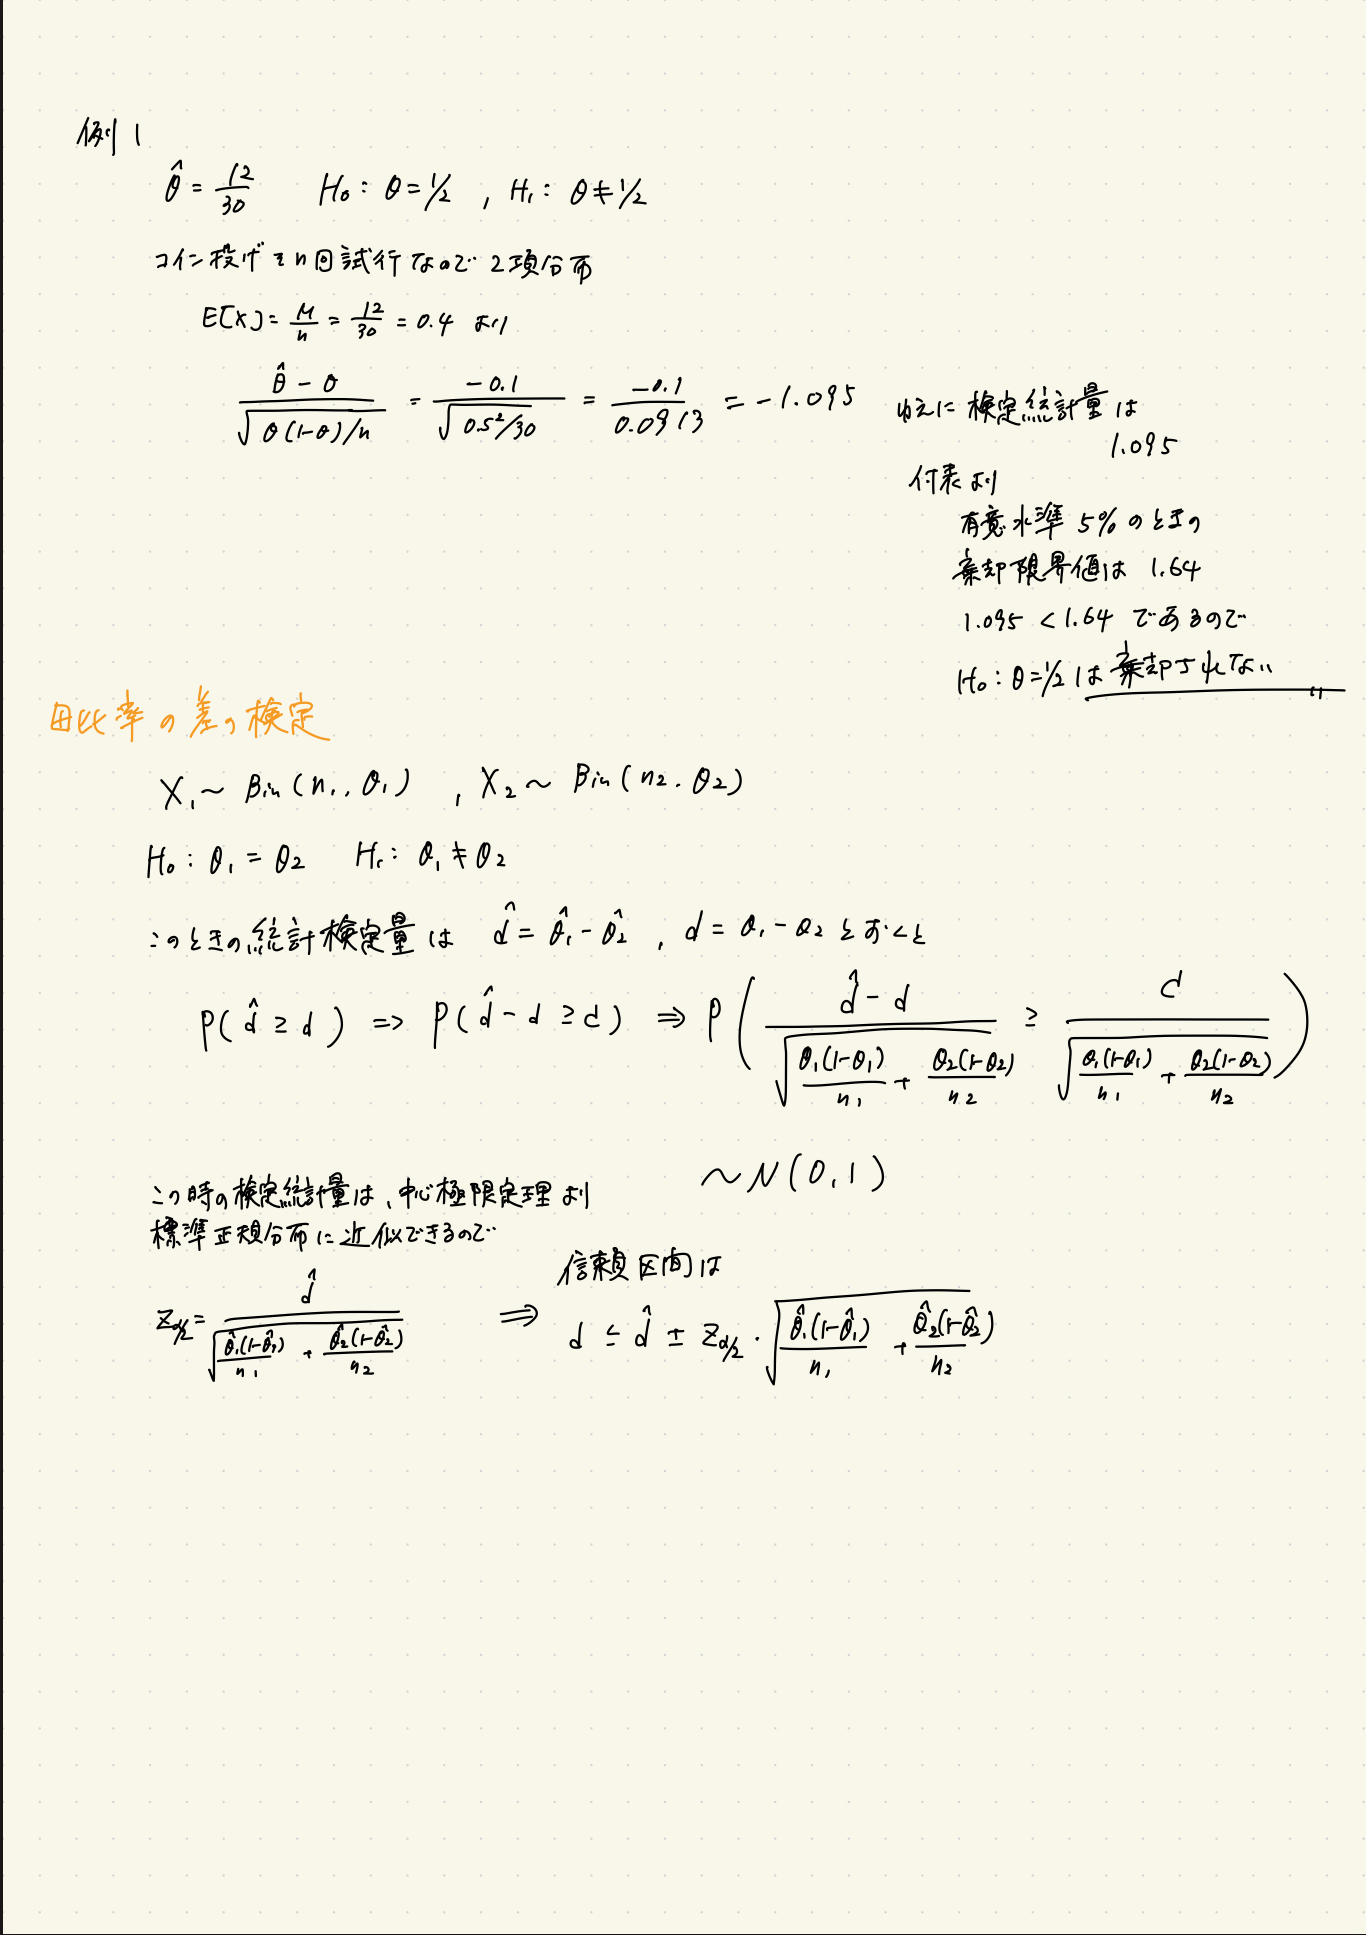 例1
θ̂ = 12/30   H₀ : θ = 1/2 , H₁ : θ ≠ 1/2
コイン投げをn回試行なので 2項分布
E[X] = μ/n = 12/30 = 0.4 より
(θ̂ - θ)/√(θ(1-θ)/n) = -0.1/√(0.5²/30) = -0.1/0.0913 = -1.095
ゆえに 検定統計量は
1.095
付表より
有意水準 5% のときの
棄却限界値は 1.64
1.095 < 1.64 であるので
H₀ : θ = 1/2 は 棄却されない //
母比率の差の検定
X₁ ~ Bin(n₁, θ₁) , X₂ ~ Bin(n₂, θ₂)
H₀ : θ₁ = θ₂   H₁ : θ₁ ≠ θ₂
このときの統計検定量は d̂ = θ̂₁ - θ̂₂ , d = θ₁ - θ₂ とおくと
P(d̂ ≥ d) => P(d̂ - d ≥ c) ⇒ P( (d̂ - d)/√(θ₁(1-θ₁)/n₁ + θ₂(1-θ₂)/n₂) ≥ c/√(θ₁(1-θ₁)/n₁ + θ₂(1-θ₂)/n₂) )
~ N(0, 1)
この時の検定統計量は、中心極限定理より
標準正規分布に近似できるので
Z_{α/2} = d̂/√(θ̂₁(1-θ̂₁)/n₁ + θ̂₂(1-θ̂₂)/n₂) ⇒
信頼区間は
d ≤ d̂ ± Z_{α/2} · √(θ̂₁(1-θ̂₁)/n₁ + θ̂₂(1-θ̂₂)/n₂)